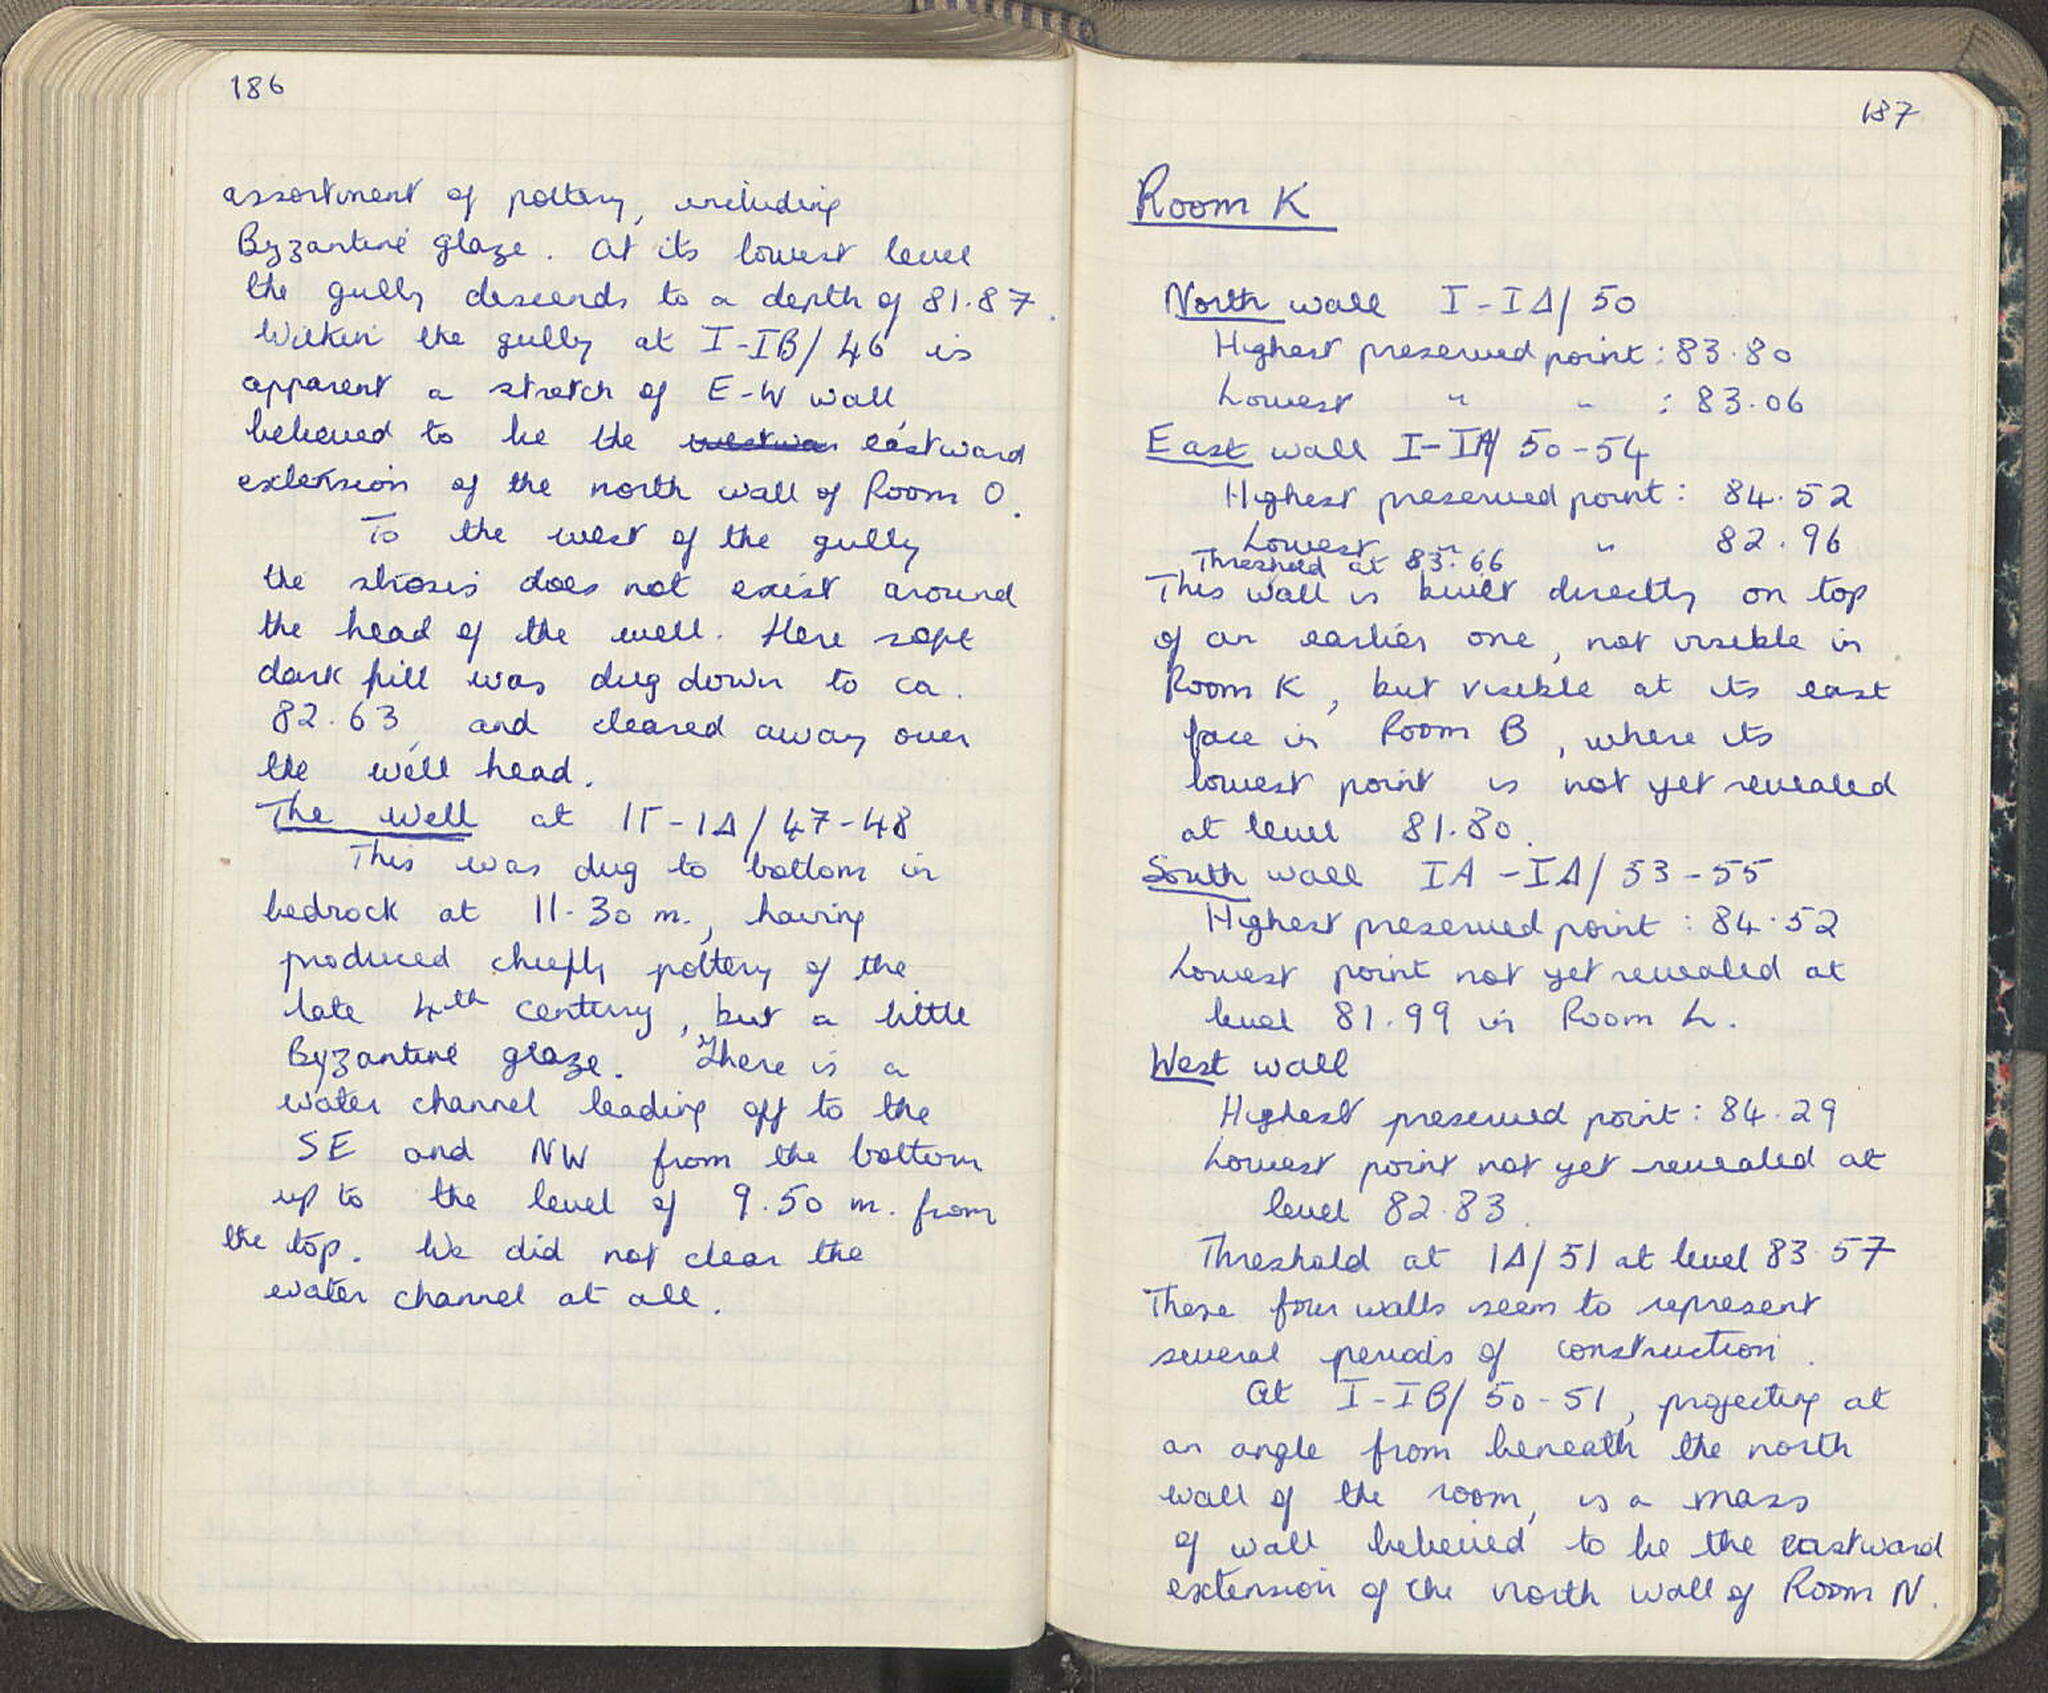 186
assortment of pottery, including
Byzantine glaze. At its lowest level
the gully descends to a depth of 81.87.
Within the gully at I-IB/46 is
apparent a stretch of E-W wall,
believed to be the eastward
extension of the north wall of Room O.
To the west of the gully
the strosis does not exist around
the head of the well. Here soft
dark fill was dug down to ca.
82.63, and cleared away over
the well head.
The Well at IΓ-IΔ/47-48
This was dug to bottom in
bedrock at 11.30 m., having
produced chiefly pottery of the
late 4th century, but a little
Byzantine glaze. There is a
water channel leading off to the
SE and NW from the bottom
up to the level of 9.50 m. from
the top. We did not clear the
water channel at all.
187
Room K
North wall I-IΔ/50
Highest preserved point: 83.80
Lowest " " : 83.06
East wall I-IA/50-54
Highest preserved point: 84.52
Lowest " " 82.96
Threshold at 83.66
This wall is built directly on top
of an earlier one, not visible in
Room K, but visible at its east
face in Room B, where its
lowest point is not yet revealed
at level 81.80.
South wall IA-IΔ/53-55
Highest preserved point: 84.52
Lowest point not yet revealed at
level 81.99 in Room L.
West wall
Highest preserved point: 84.29
Lowest point not yet revealed at
level 82.83.
Threshold at IΔ/51 at level 83.57
These four walls seem to represent
several periods of construction.
At I-IB/50-51, projecting at
an angle from beneath the north
wall of the room, is a mass
of wall believed to be the eastward
extension of the north wall of Room N.